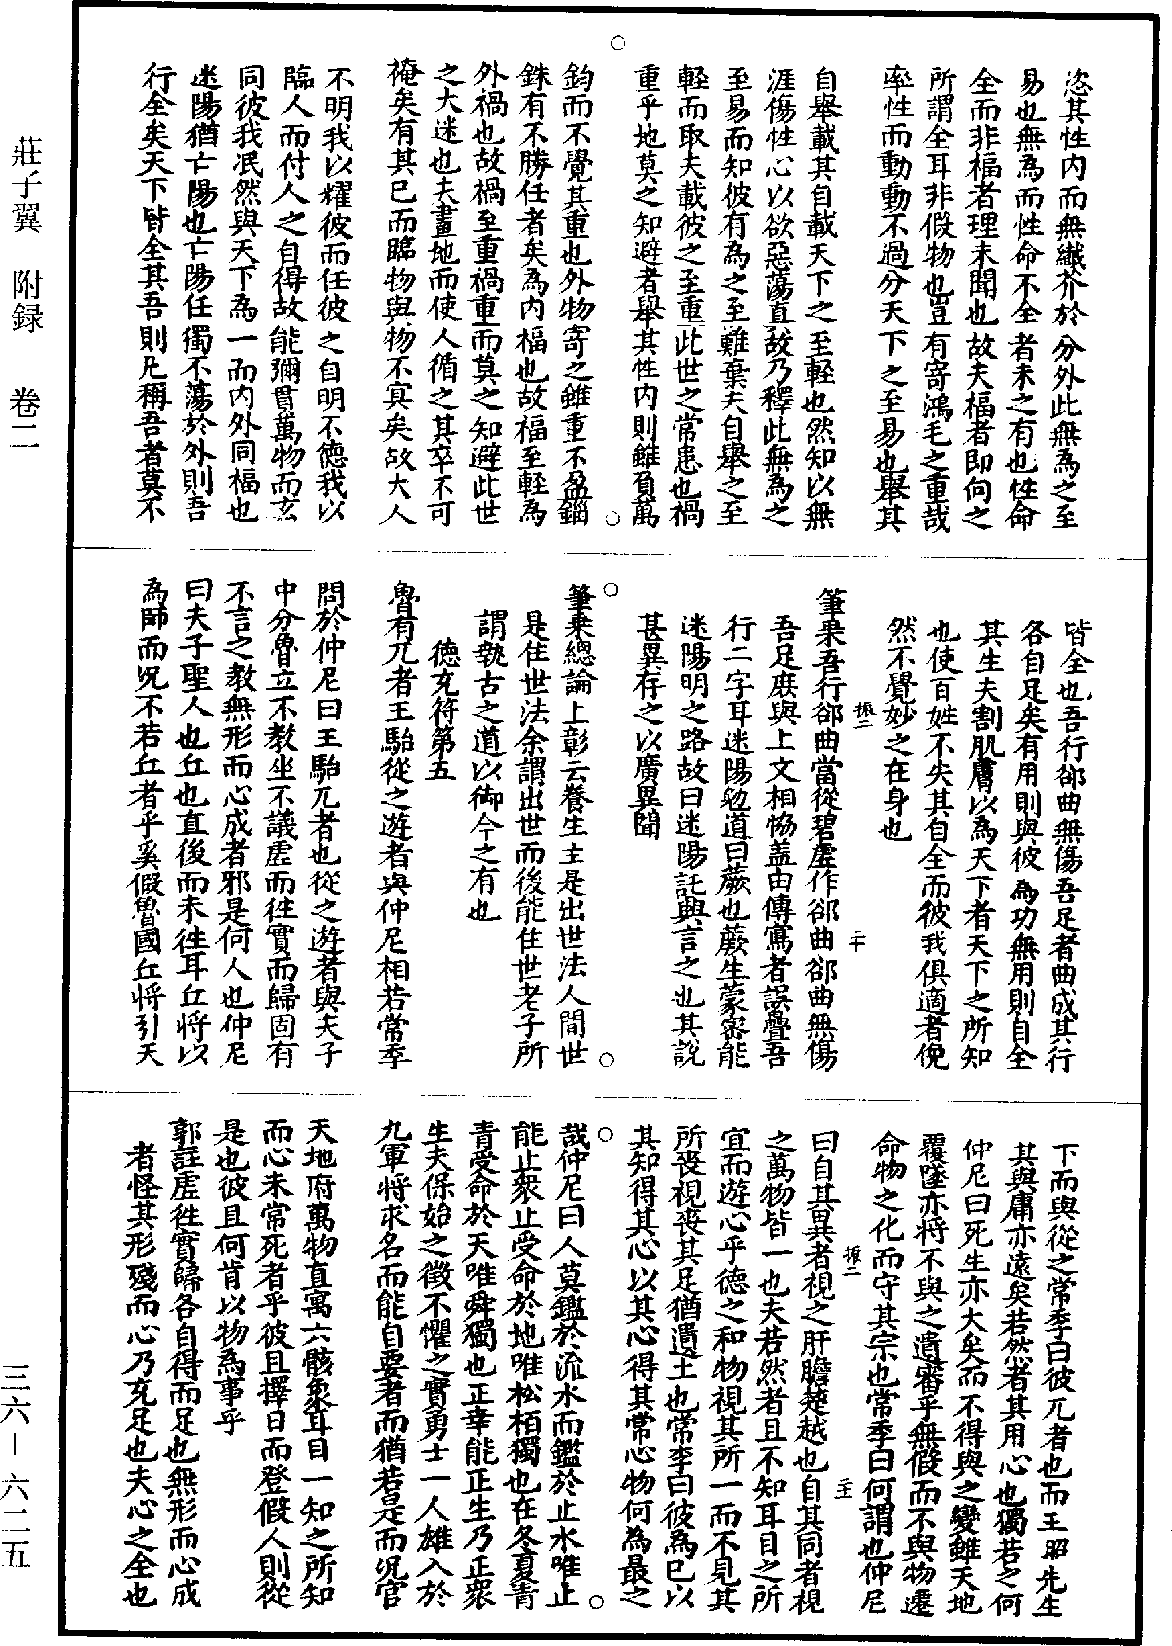 恣其性內而無纖介於分外此無為之至
易也無為而性命不全者未之有也性命
全而非福者理未聞也故夫福者即向之
所謂全耳非假物也豈有寄鴻毛之重哉
率性而動動不過分天下之至易也舉其
自舉載其自載天下之至輕也然知以無
涯傷性心以欲惡蕩真故乃釋此無為之
至易而知彼有為之至難棄夫自舉之至
輕而取夫載彼之至重此世之常患也禍
重乎地莫之知避者舉其性內則雖負萬
鈞而不覺其重也外物寄之雖重不盈錙
銖有不勝任者矣為內福也故福至輕為
外禍也故禍至重禍重而莫之知避此世
之大迷也夫畫地而使人循之其卒不可
掩矣有其已而臨物與物不冥矣故大人
不明我以耀彼而任彼之自明不德我以
臨人而付人之自得故能彌貫萬物而玄
同彼我泯然與天下為一而內外同福也
迷陽猶亡陽也亡陽任獨不蕩於外則吾
行全矣天下皆全其吾則凡稱吾者莫不
皆全也吾行郤曲無傷吾足者曲成其行
各自足矣有用則與彼為功無用則自全
其生夫割肌膚以為天下者天下之所知
也使百姓不失其自全而彼我俱適者俛
然不覺妙之在身也
筆乗吾行郤曲當從碧虛作郤曲郤曲無傷
吾足庶與上文相恊蓋由傳寫者誤疊吾
行二字耳迷陽勉道曰蕨也蕨生蒙密能
迷陽明之路故曰迷陽託興言之也其說
甚異存之以廣異聞
筆乗總論上彰云養生主是出世法人間世
是住世法余謂出世而後能住世老子所
謂執古之道以御今之有也
德充符第五
魯有兀者王駘從之遊者與仲尼相若常季
問於仲尼曰王駘兀者也從之遊者與夫子
中分魯立不教坐不議虛而徃實而歸固有
不言之教無形而心成者邪是何人也仲尼
曰夫子聖人也丘也直後而未徃耳丘將以
為師而况不若丘者乎奚假魯國丘將引天
下而與從之常季曰彼兀者也而王先生
其與庸亦遠矣若然者其用心也獨若之何
仲尼曰死生亦大矣而不得與之變雖天地
覆墜亦將不與之遺審乎無假而不與物遷
命物之化而守其宗也常季曰何謂也仲尼
曰自其異者視之肝膽楚越也自其同者視
之萬物皆一也夫若然者且不知耳目之所
宜而遊心乎德之和物視其所一而不見其
所喪視喪其足猶遺土也常季曰彼為已以
其知得其心以其心得其常心物何為最之
哉仲尼曰人莫鑑於流水而鑑於止水唯止
能止衆止受命於地唯松栢獨也在冬夏青
青受命於天唯舜獨也正幸能正生乃正衆
生夫保始之徵不懼之實勇士一人雄入於
九軍將求名而能自要者而猶若是而况官
天地府萬物直寓六骸象耳目一知之所知
而心未常死者乎彼且擇日而登假人則從
是也彼且何肯以物為事乎
郭註虛徃實歸各自得而足也無形而心成
者怪其形殘而心乃充足也夫心之全也
莊子翼 附録 卷二
三六－六二五